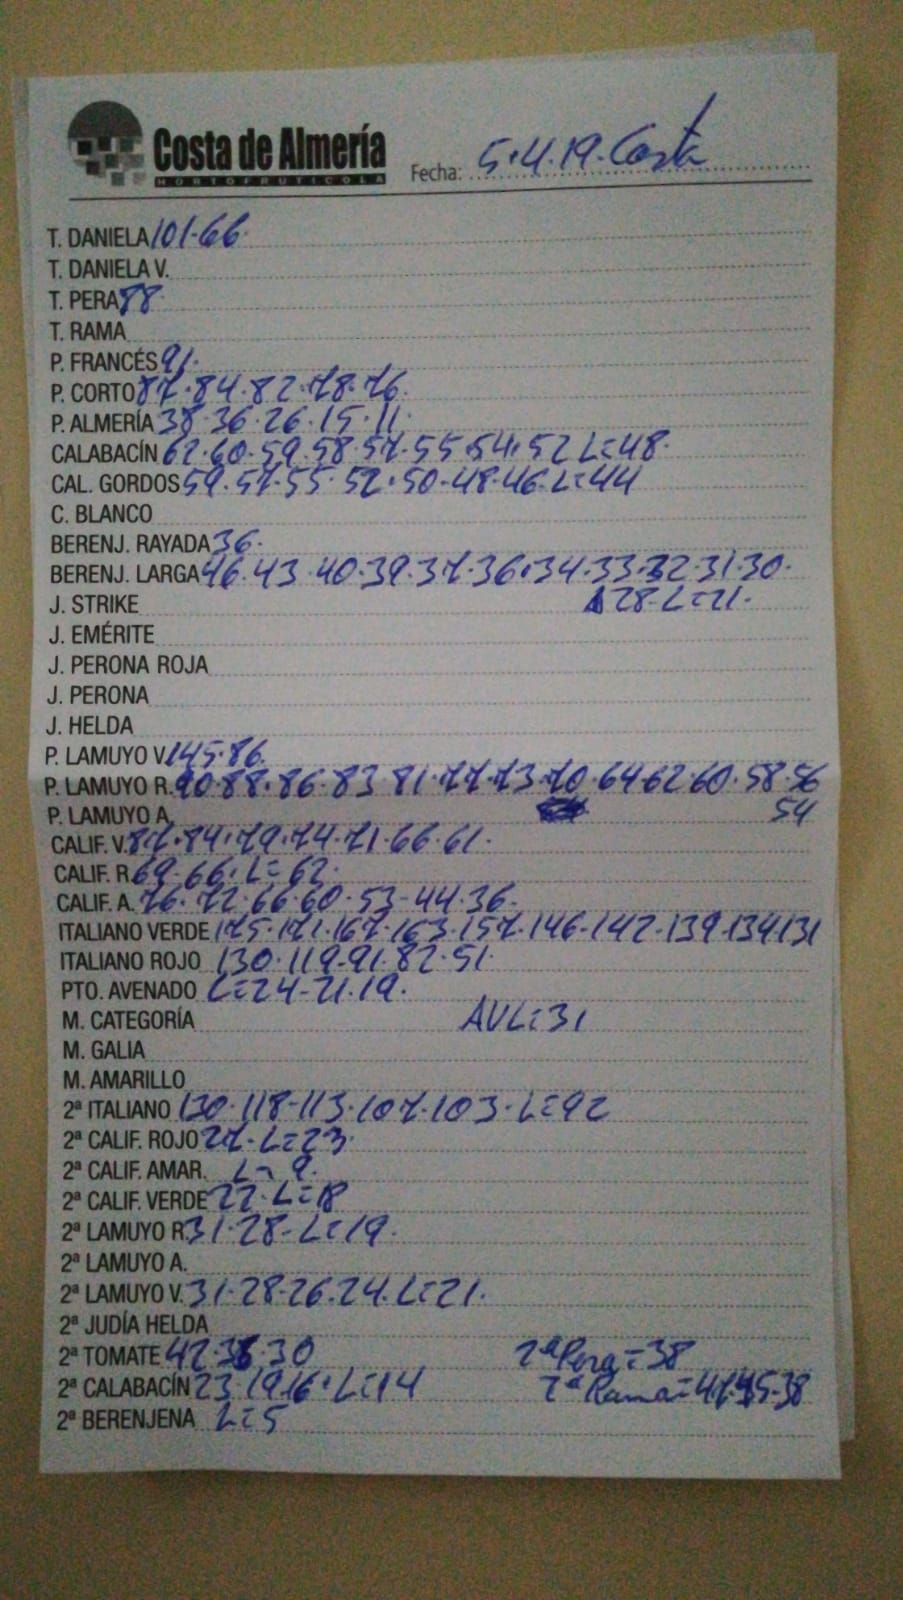 Costa de Almería
HORTOFRUTICOLA
Fecha: 5.4.19. Costa
T. DANIELA 101.66.
T. DANIELA V.
T. PERA 88.
T. RAMA
P. FRANCÉS 91.
P. CORTO 87.84.82.78.76.
P. ALMERÍA 38.36.26.15.11.
CALABACÍN 62.60.59.58.57.55.54.52 L=48.
CAL. GORDOS 59.57.55.52.50-48-46-L=44
C. BLANCO
BERENJ. RAYADA 36.
BERENJ. LARGA 46.43.40.39.37.36.34.33.32.31.30.
J. STRIKE 28-L=21.
J. EMÉRITE
J. PERONA ROJA
J. PERONA
J. HELDA
P. LAMUYO V. 145.86.
P. LAMUYO R. 90.88.86.83.81.77.73.70.64.62.60.58.56
P. LAMUYO A. 54
CALIF. V. 87.84.79.74.71.66.61.
CALIF. R. 69.66.L=62.
CALIF. A. 76.72.66.60.53-44-36.
ITALIANO VERDE 175.171.167.163.157.146-142-139-134-131
ITALIANO ROJO 130.119-91.82.51.
PTO. AVENADO L=24-21.19.
M. CATEGORÍA AVL=31
M. GALIA
M. AMARILLO
2ª ITALIANO 130.118-113.107.103.L=92
2ª CALIF. ROJO 27-L=23.
2ª CALIF. AMAR. L=9.
2ª CALIF. VERDE 22.L=18
2ª LAMUYO R. 31.28-L=19.
2ª LAMUYO A.
2ª LAMUYO V. 31.28-26.24.L=21.
2ª JUDÍA HELDA
2ª TOMATE 42. .30 2ª Pera=38
2ª CALABACÍN 23.19.16.L=14 2ª Rama=47.45-38
2ª BERENJENA L=5